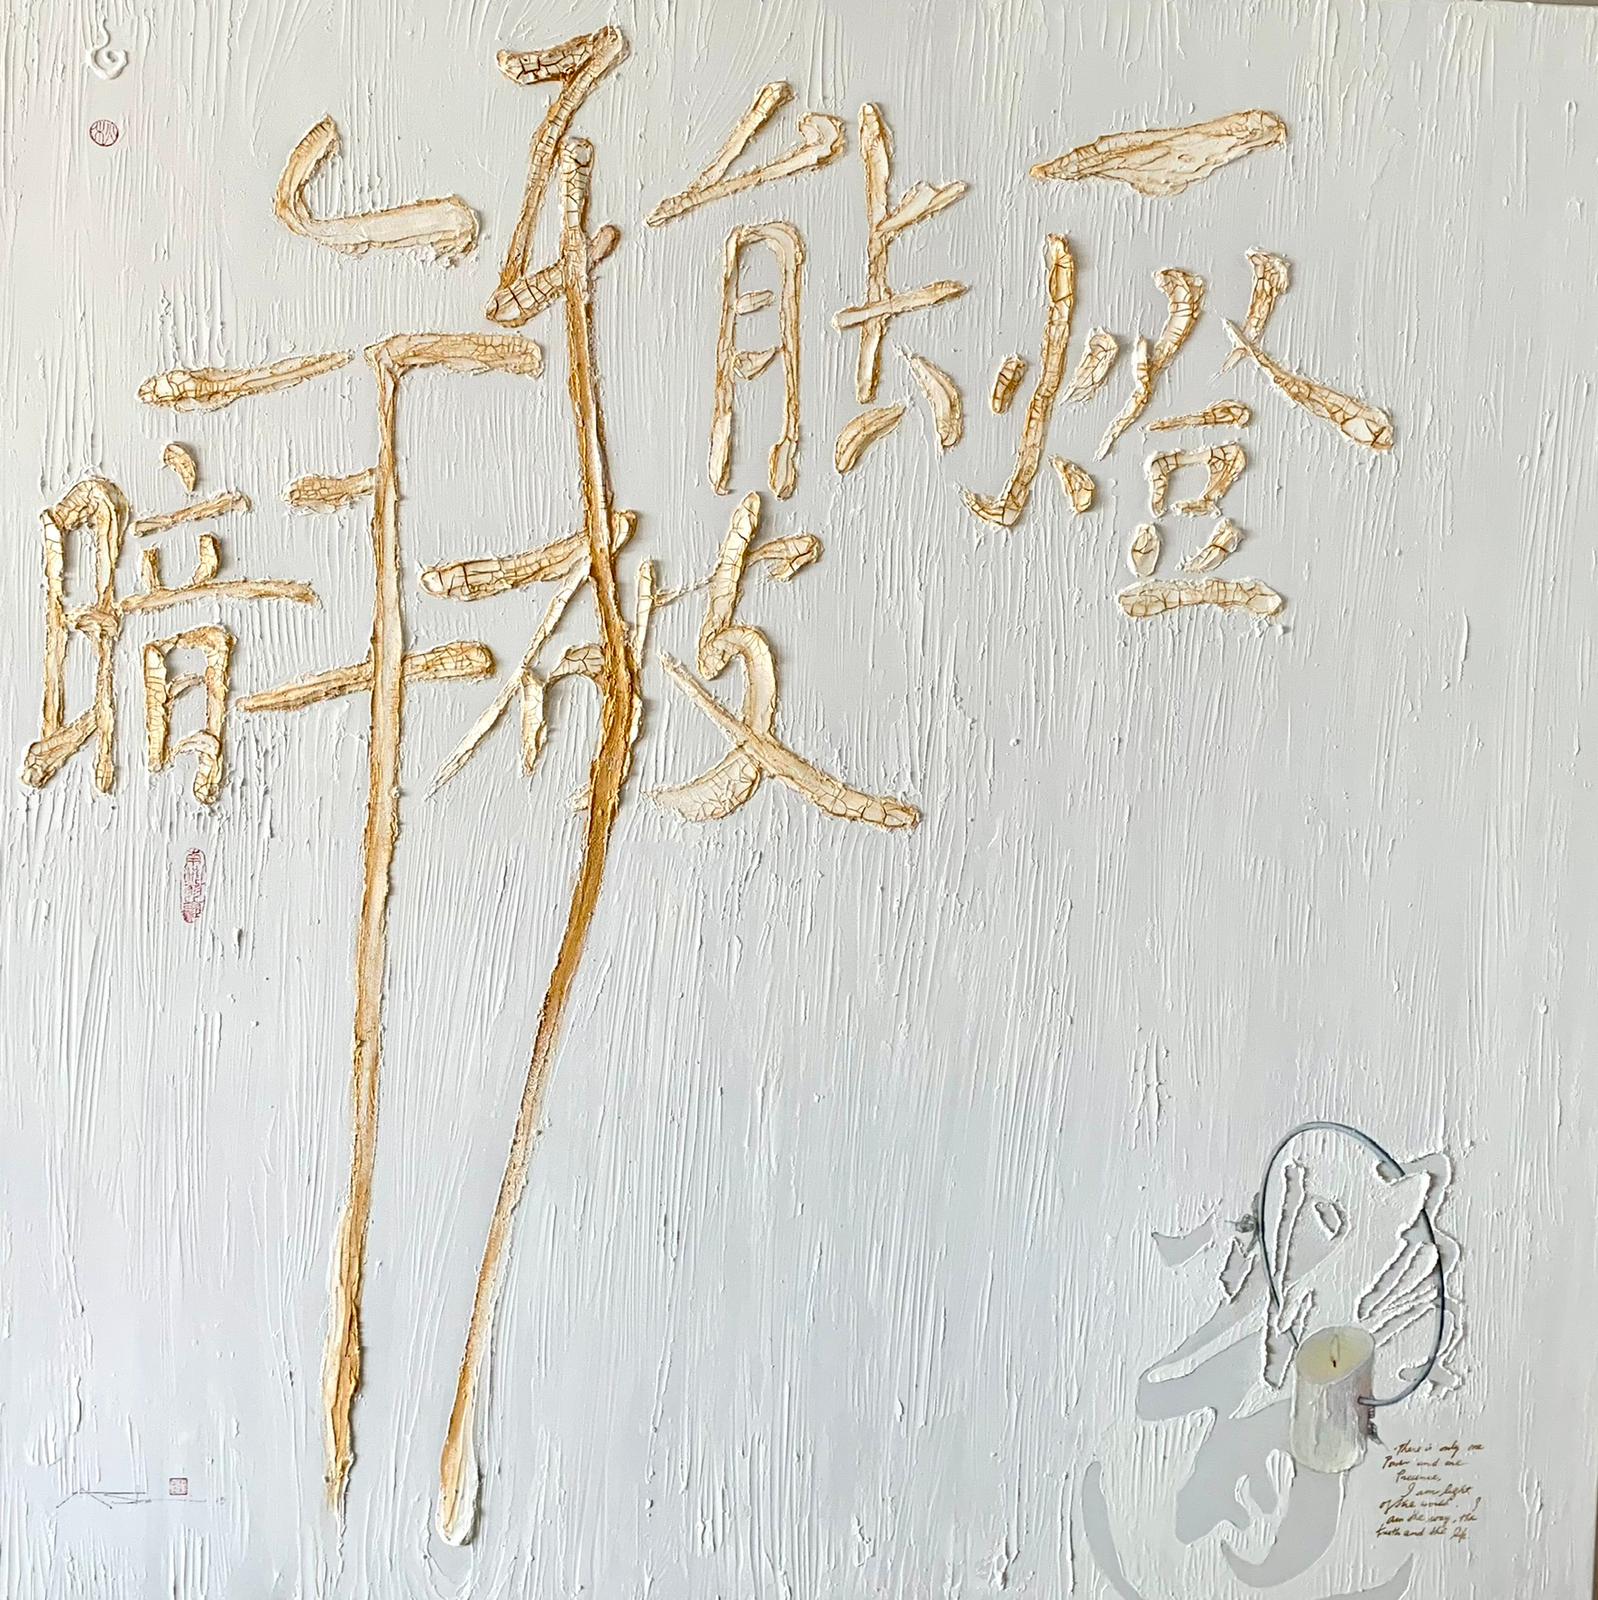 一燈
能破
千年暗
There is only one
Power and one
Presence,
I am light
of the world. I
am the way, the
truth and the life